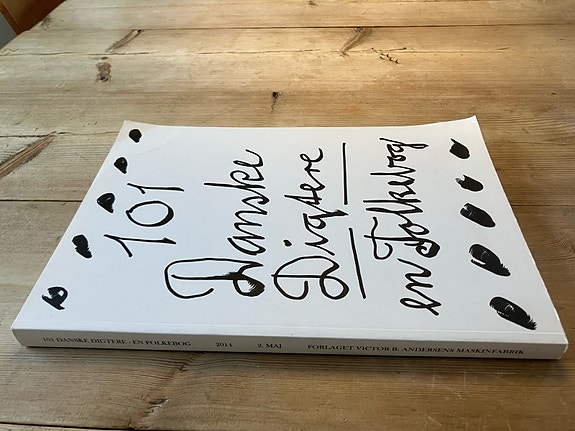 101
Danske
Digtere
en Folkebog
101 DANSKE DIGTERE - EN FOLKEBOG 2014 2. MAJ FORLAGET VICTOR B. ANDERSENS MASKINFABRIK